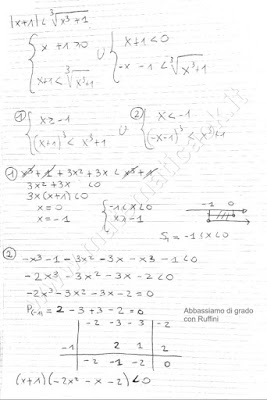 |x+1| < ∛x³+1
{ x+1≥0
x+1 < ∛x³+1
∪ { x+1<0
-x-1 < ∛x³+1
① { x≥-1
(x+1)³ < x³+1
∪
② { x<-1
(-x-1)³ < x³+1
① x³+1+3x²+3x < x³+1
3x²+3x <0
3x(x+1) <0
x=0
x=-1
{ -1<x<0
x≥-1
-1 0
S₁ = -1<x<0
②
-x³-1-3x²-3x-x³-1<0
-2x³-3x²-3x-2<0
-2x³-3x²-3x-2=0
P(-1) = 2-3+3-2=0
Abbassiamo di grado
con Ruffini
-2 -3 -3 -2
-1 2 1 2
-2 -1 -2 0
(x+1)(-2x²-x-2)<0